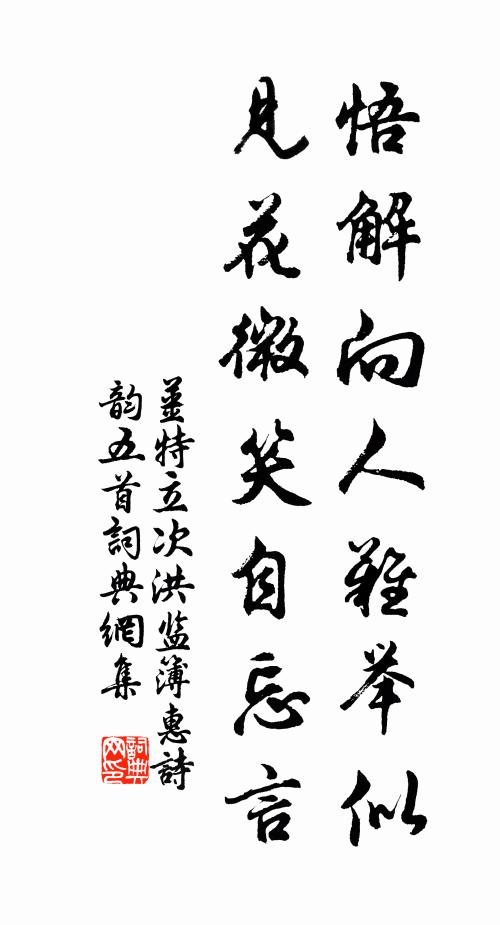 悟解向人難举似
見花微笑自忘言
姜特立次洪监簿惠詩
韵五首詞典網集
詞典
网印